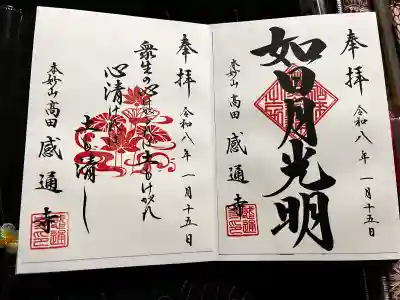 奉拝
如日月光明
令和八年一月十五日
高田 感通寺
奉拝
衆生の心けがるれば土もけがれ
心清ければ
土も清し
令和八年一月十五日
高田 感通寺